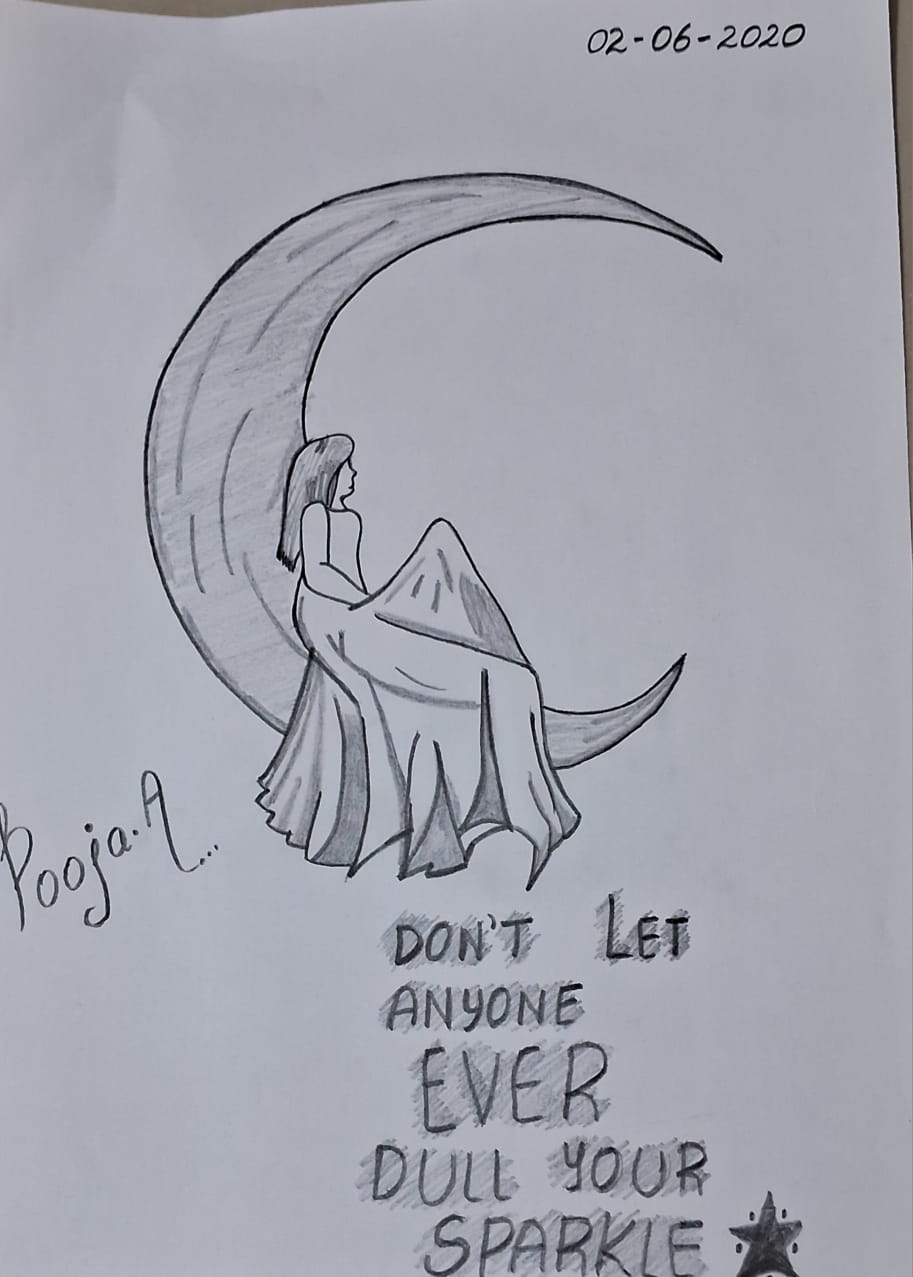 02-06-2020
Pooja.A...
DON'T LET
ANYONE
EVER
DULL YOUR
SPARKLE